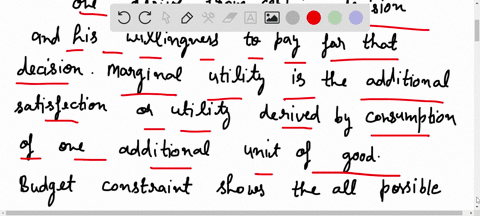 one
and his willingness to pay for that
decision. Marginal utility is the additional
satisfaction or utility derived by consumption
of one additional unit of good.
Budget constraint shows the all possible